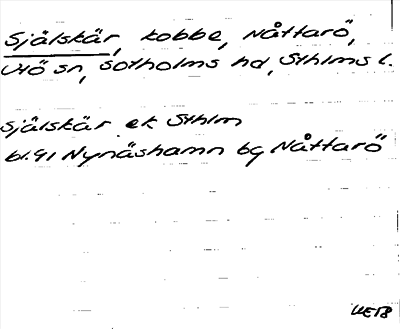 Själskär, kobbe, Nåttarö,
Utö sn, Sotholms hd, Sthlms l.
Själskär ek Sthlm
bl.91 Nynäshamn bg Nåttarö